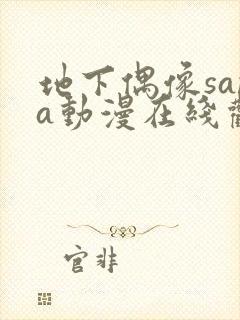 地下偶像sa
a動漫在綫
官非